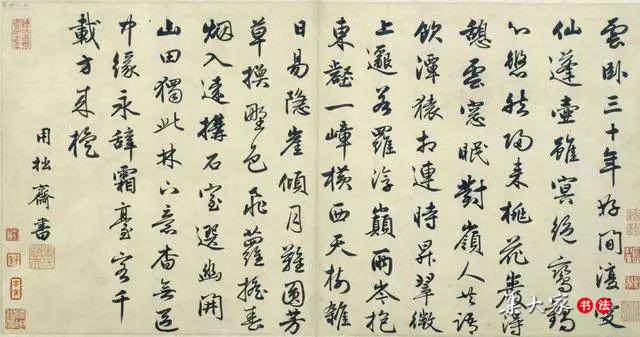 雲卧三十年好閒復愛
仙蓬壺雖冥絕鸞鶴
心悠然歸来桃花巖得
憩雲窓眠對嶺人共語
飲潭猿相連時昇翠微
上邈若羅浮巔兩岑抱
東壑一嶂橫西天樹雜
日易隱崖傾月難圓芳
草換野色飛蘿摇春
烟入遠構石室選幽開
山田獨此林下意杳無區
中緣永辭霜臺客千
載方来旋
用拙齋書
集大家 书法